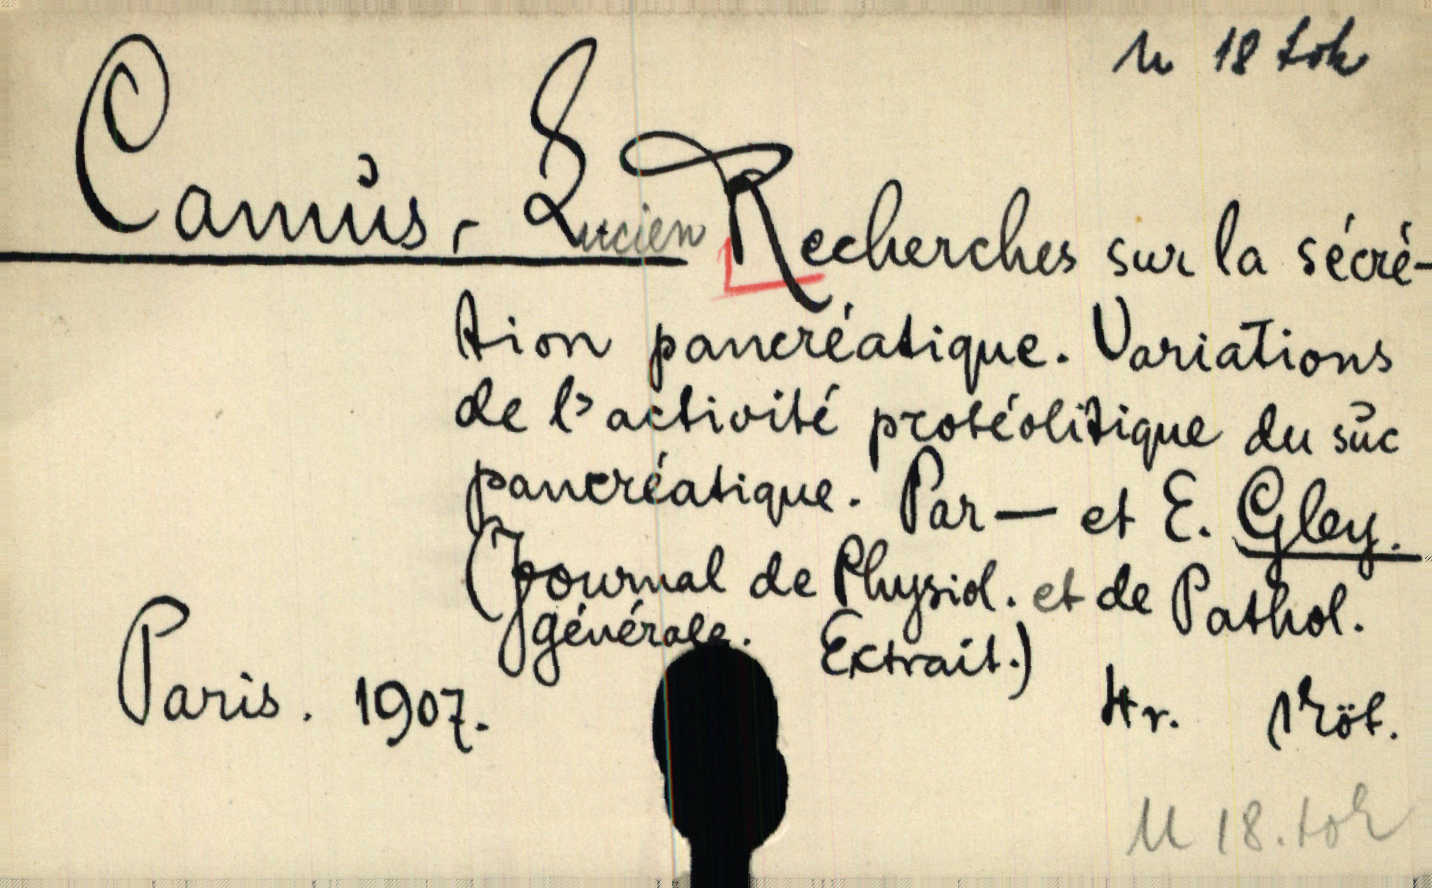 M 18 tok
Camus, Lucien Recherches sur la sécré-
tion pancréatique. Variations
de l'activité protéolitique du suc
pancréatique. Par — et E. Gley.
(Journal de Physiol. et de Pathol.
générale. Extrait.)
Paris. 1907.
4r. 1 röt.
M 18. tok